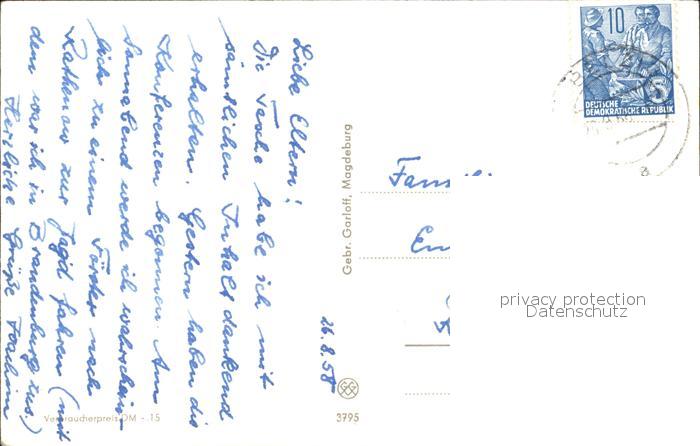 Liebe Eltern!
Die Tasche habe ich mit
sämtlichem Inhalt dankend
erhalten. Gestern haben die
Konferenzen begonnen. Am
Sonnabend werde ich wahrschein-
lich zu einem Förster nach
Rathenow zur Jagd fahren (mit
dem war ich in Brandenburg zus.)
Herzliche Grüße Joachim
26.8.58
Gebr. Garloff, Magdeburg
Verbraucherpreis DM -.15
3795
10
5
DEUTSCHE
DEMOKRATISCHE REPUBLIK
privacy protection
Datenschutz